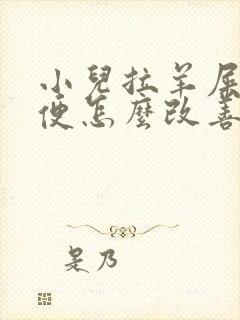 小兒拉羊屎
便怎麼改善
是乃